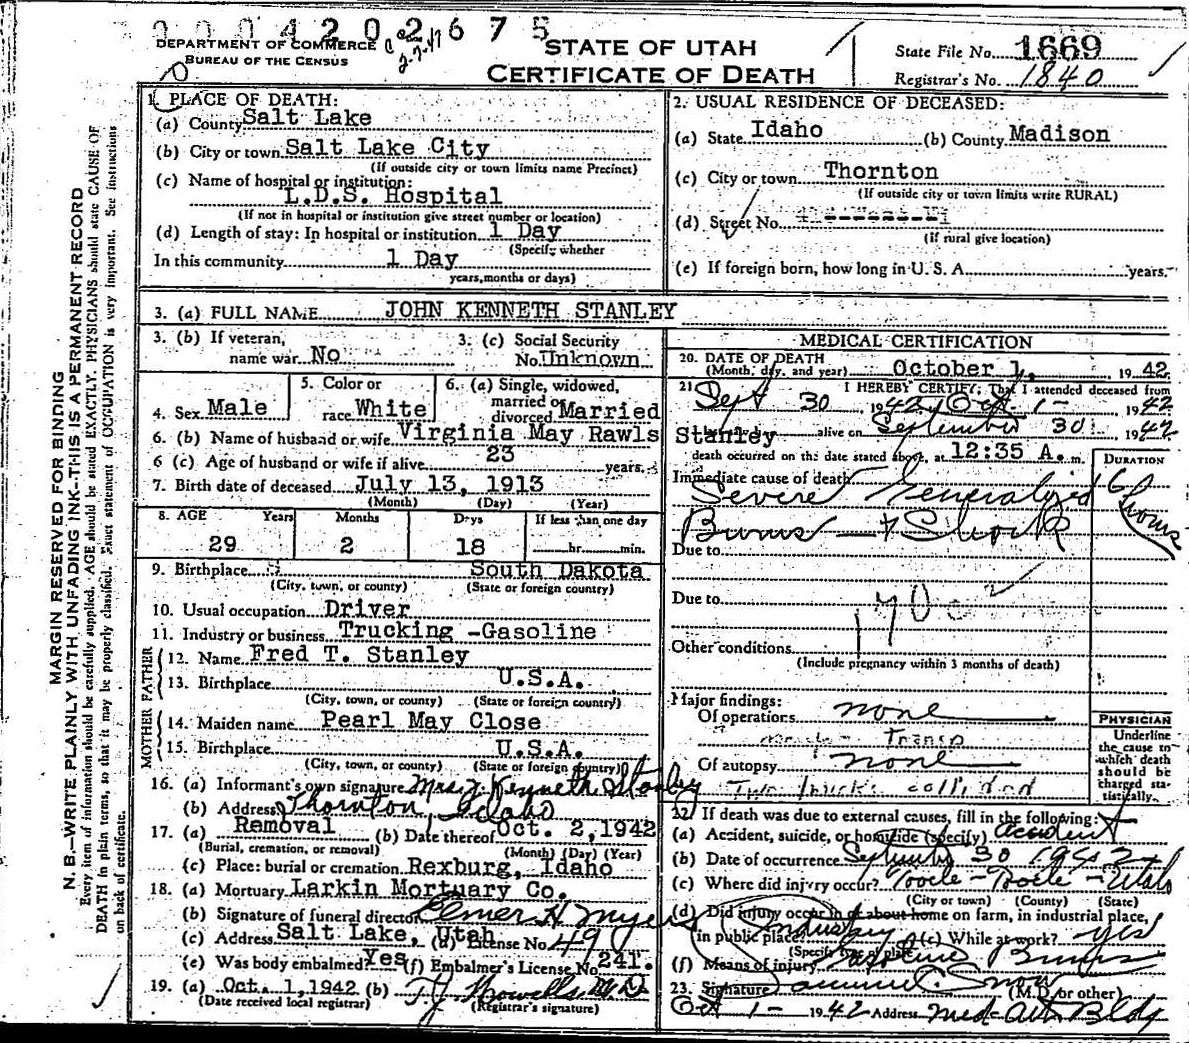 0 0 0 4 2 0 2 6 7 5
DEPARTMENT OF COMMERCE
BUREAU OF THE CENSUS
2-7-47
STATE OF UTAH
CERTIFICATE OF DEATH
State File No. 1669
Registrar's No. 1840
MARGIN RESERVED FOR BINDING
N. B.—WRITE PLAINLY WITH UNFADING INK--THIS IS A PERMANENT RECORD
Every item of information should be carefully supplied. AGE should be stated EXACTLY. PHYSICIANS should state CAUSE OF
DEATH in plain terms, so that it may be properly classified. Exact statement of OCCUPATION is very important. See instructions
on back of certificate.
1. PLACE OF DEATH:
(a) County Salt Lake
(b) City or town Salt Lake City
(If outside city or town limits name Precinct)
(c) Name of hospital or institution:
L.D.S. Hospital
(If not in hospital or institution give street number or location)
(d) Length of stay: In hospital or institution 1 Day
(Specify whether
In this community 1 Day
years, months or days)
2. USUAL RESIDENCE OF DECEASED:
(a) State Idaho (b) County Madison
(c) City or town Thornton
(If outside city or town limits write RURAL)
(d) Street No.
(If rural give location)
(e) If foreign born, how long in U. S. A. years.
3. (a) FULL NAME JOHN KENNETH STANLEY
3. (b) If veteran,
name war No
3. (c) Social Security
No. Unknown
4. Sex Male
5. Color or
race White
6. (a) Single, widowed,
married or
divorced Married
6. (b) Name of husband or wife Virginia May Rawls Stanley
6 (c) Age of husband or wife if alive 23 years.
7. Birth date of deceased July 13, 1913
(Month) (Day) (Year)
8. AGE Years Months Days If less than one day
29 2 18 hr. min.
9. Birthplace South Dakota
(City, town, or county) (State or foreign country)
10. Usual occupation Driver
11. Industry or business Trucking -Gasoline
FATHER
12. Name Fred T. Stanley
13. Birthplace U.S.A.
(City, town, or county) (State or foreign country)
MOTHER
14. Maiden name Pearl May Close
15. Birthplace U.S.A.
(City, town, or county) (State or foreign country)
16. (a) Informant's own signature Mrs. J. Kenneth Stanley
(b) Address Thornton, Idaho
17. (a) Removal (b) Date thereof Oct. 2, 1942
(Burial, cremation, or removal) (Month) (Day) (Year)
(c) Place: burial or cremation Rexburg, Idaho
18. (a) Mortuary Larkin Mortuary Co.
(b) Signature of funeral director Elmer H Myers
(c) Address Salt Lake, Utah (d) License No. 49
(e) Was body embalmed? Yes (f) Embalmer's License No. 241.
19. (a) Oct. 1, 1942 (b) T.J. Howells M.D.
(Date received local registrar) (Registrar's signature)
MEDICAL CERTIFICATION
20. DATE OF DEATH
(Month, day, and year) October 1, 1942
21. I HEREBY CERTIFY: That I attended deceased from
Sept 30 1942, Oct. 1 - 1942
alive on September 30 1942
death occurred on the date stated above, at 12:35 A. m.
DURATION
Immediate cause of death
Severe Generalized
Burns + Shock
6 hours
Due to
Due to
170c
Other conditions
(Include pregnancy within 3 months of death)
Major findings:
Of operations none
Transp
Of autopsy none
Two trucks collided
PHYSICIAN
Underline
the cause to
which death
should be
charged sta-
tistically.
22. If death was due to external causes, fill in the following:
(a) Accident, suicide, or homicide (specify) accident
(b) Date of occurrence September 30 1942
(c) Where did injury occur? Tooele - Tooele - Utah
(City or town) (County) (State)
(d) Did injury occur in or about home on farm, in industrial place,
in public place? Industry (e) While at work? yes
(Specify type of place)
(f) Means of injury Gasoline Burns
23. Signature Snow
(M.D. or other)
Oct 1 - 1942 Address Med-Art Bldg